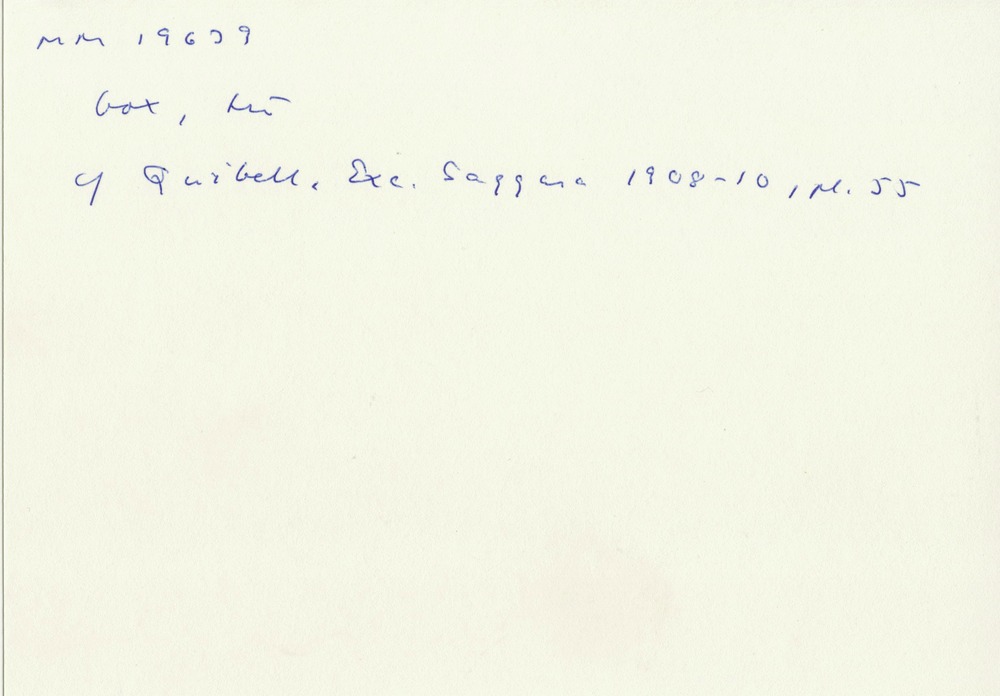 MM 19639
box,
cf Quibell. Exc. Saqqara 1908-10, pl. 55